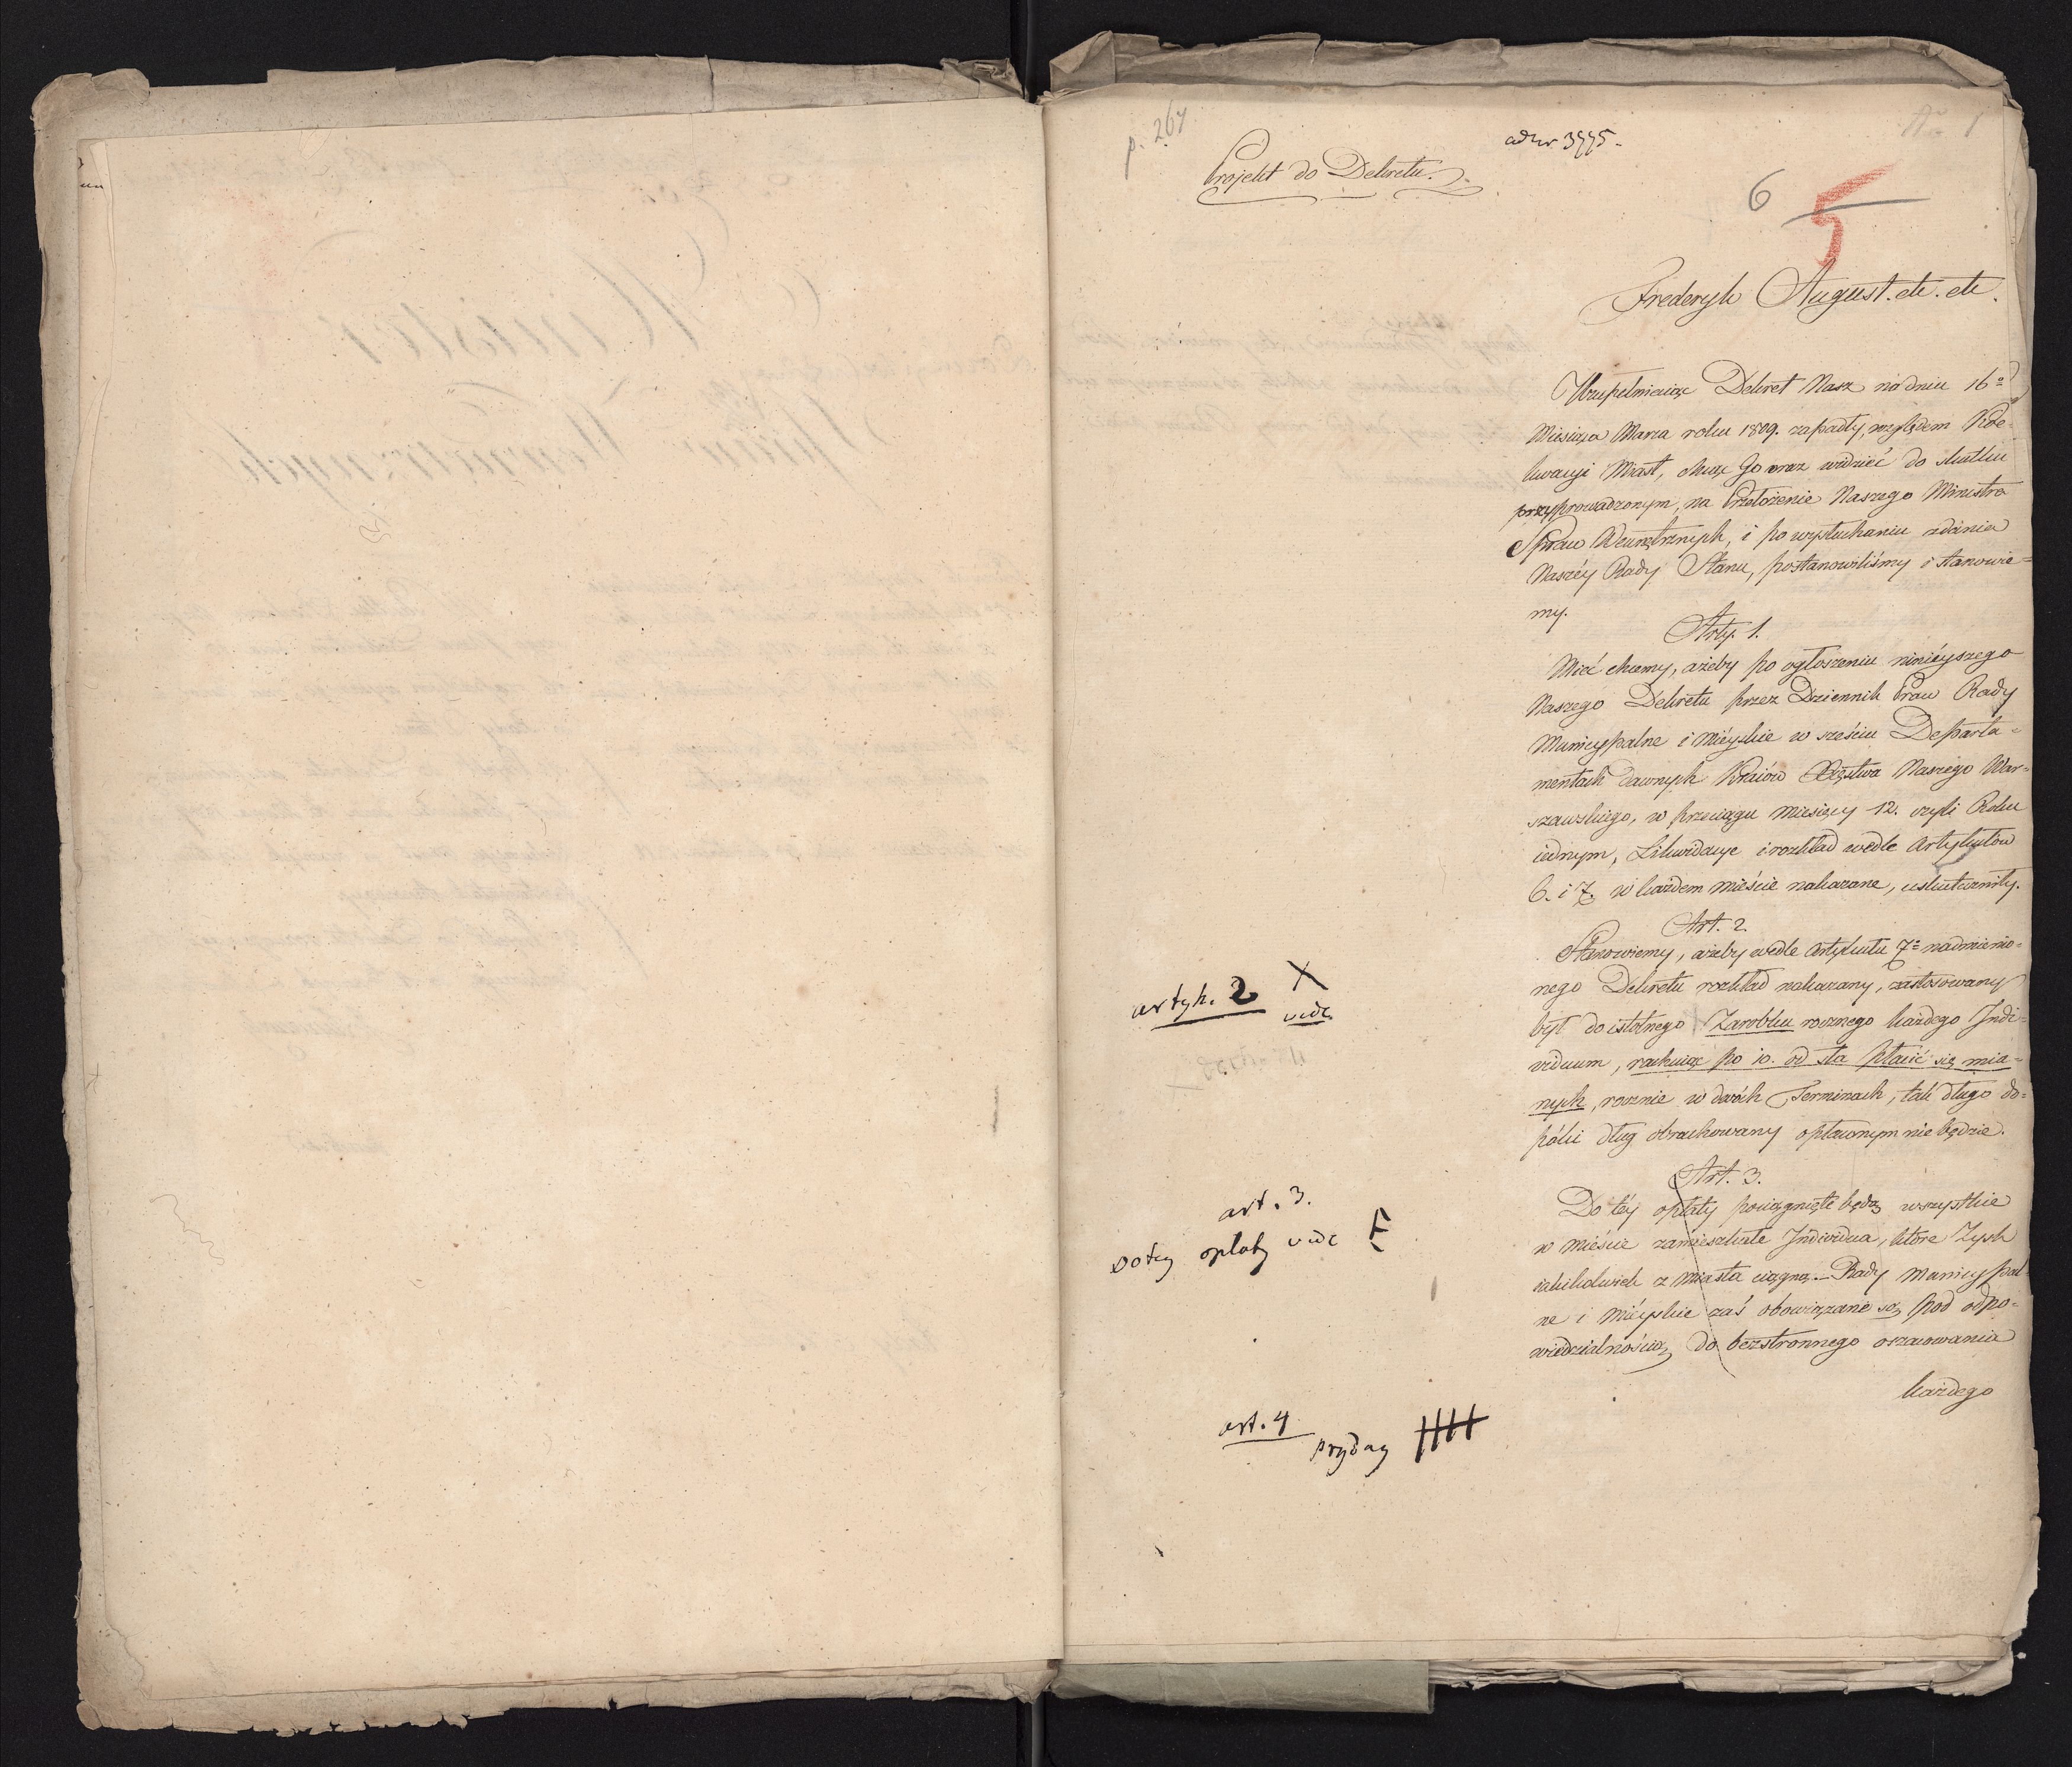 p. 267
ad nr 3775.
Projekt do Dekretu.
6
5
Frederyk August. etc. etc.
Uzupełniaiąc Dekret Nasz na dniu 16º
Miesiąca Marca roku 1809. zapadły, względem
kwacyi Miast, chcąc Go oraz widzieć do skutku
przyprowadzonym, na Przełożenie Naszego Ministra
Spraw Wewnętrznych, i po wysłuchaniu zdania
Naszéy Rady Stanu, postanowiliśmy i stanowie=
my.
Arty. 1.
Mieć chcemy, ażeby po ogłoszeniu ninieyszego
Naszego Dekretu przez Dziennik Praw Rady
Municypalne i Mieyskie w sześciu Departa=
mentach dawnych Kraiów Xięstwa Naszego War=
szawskiego, w przeciągu Miesięcy 12. czyli Roku
iednym, Likwidacye i rozkład wedle Artykułów
6. i 7. w każdem mieście nakazane, uskuteczniły.
Art. 2.
Stanowiemy, ażeby wedle Artykułu 7º nadmienio=
nego Dekretu rozkład nakazany, zastosowany
był do istotnego Zarobku rocznego każdego Indi=
viduum, rachuiąc po 10. od sta płacić się mia=
nych, rocznie w dwóch Terminach, tak długo do=
póki dług obrachowany opłaconym nie będzie.
artyk. 2 X
vide
Art. 3.
Do téy opłaty pociągnięte będą wszystkie
w mieście zamieszkałe Individua, które Zysk
iakikolwiek z Miasta ciągną. – Rady Municypal=
ne i Mieyskie zaś obowiązane są, pod odpo=
wiedzialnością, do bezstronnego oszacowania
każdego
art. 3.
Do tey opłaty vide F
art. 4
przyday